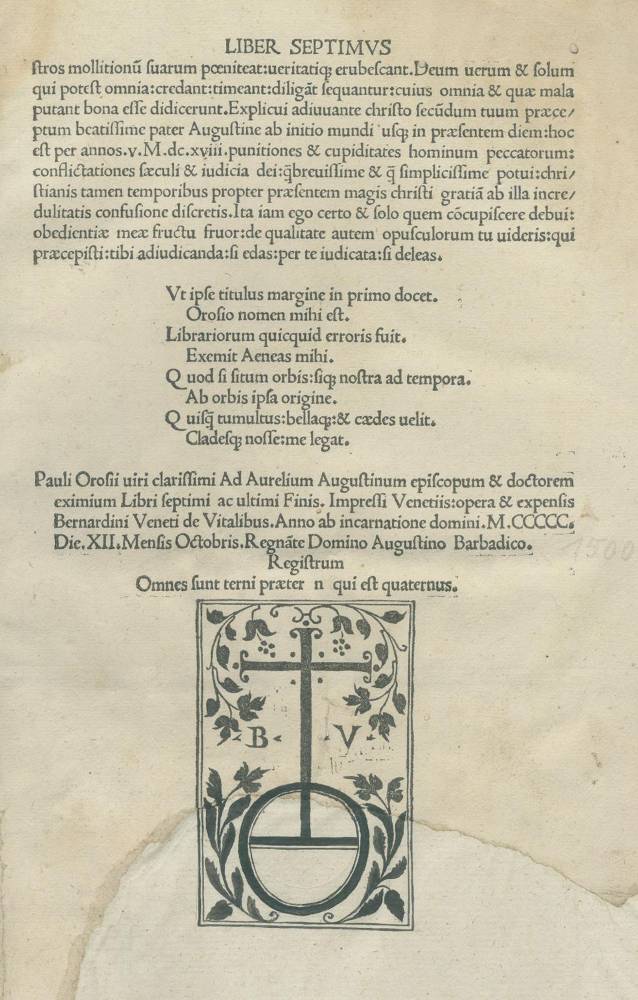 LIBER SEPTIMVS
stros mollitionū suarum pœniteat:ueritatiqꝫ erubescant.Deum uerum & solum
qui potest omnia:credant:timeant:diligāt sequantur:cuius omnia & quæ mala
putant bona esse didicerunt.Explicui adiuuante christo secūdum tuum præce/
ptum beatissime pater Augustine ab initio mundi usqꝫ in præsentem diem:hoc
est per annos.v.M.dc.xviii.punitiones & cupiditates hominum peccatorum:
conflictationes sæculi & iudicia dei:q̄breuissime & q̄ simplicissime potui:chri/
stianis tamen temporibus propter præsentem magis christi gratiā ab illa incre/
dulitatis confusione discretis.Ita iam ego certo & solo quem cōcupiscere debui:
obedientiæ meæ fructu fruor:de qualitate autem opusculorum tu uideris:qui
præcepisti:tibi adiudicanda:si edas:per te iudicata:si deleas.
Vt ipse titulus margine in primo docet.
Orosio nomen mihi est.
Librariorum quicquid erroris fuit.
Exemit Aeneas mihi.
Quod si situm orbis:siqꝫ nostra ad tempora.
Ab orbis ipsa origine.
Quisq̄ tumultus:bellaqꝫ:& cædes uelit.
Cladesqꝫ nosse:me legat.
Pauli Orosii uiri clarissimi Ad Aurelium Augustinum episcopum & doctorem
eximium Libri septimi ac ultimi Finis. Impressi Venetiis:opera & expensis
Bernardini Veneti de Vitalibus.Anno ab incarnatione domini.M.CCCCC.
Die.XII.Mensis Octobris.Regnāte Domino Augustino Barbadico.
1500
Registrum
Omnes sunt terni præter n qui est quaternus.
B V